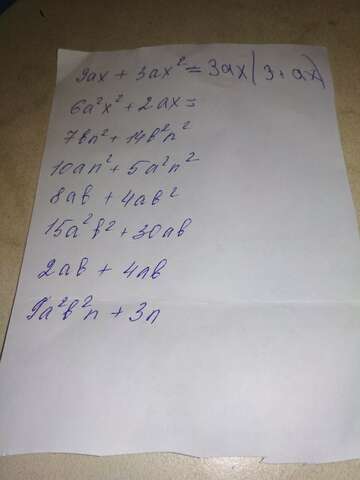 9ax + 3ax² = 3ax(3+ax)
6a²x² + 2ax =
7вn² + 14в²n²
10an² + 5a²n²
8aв + 4aв²
15a²в² + 30aв
2aв + 4aв
9a²в²n + 3n